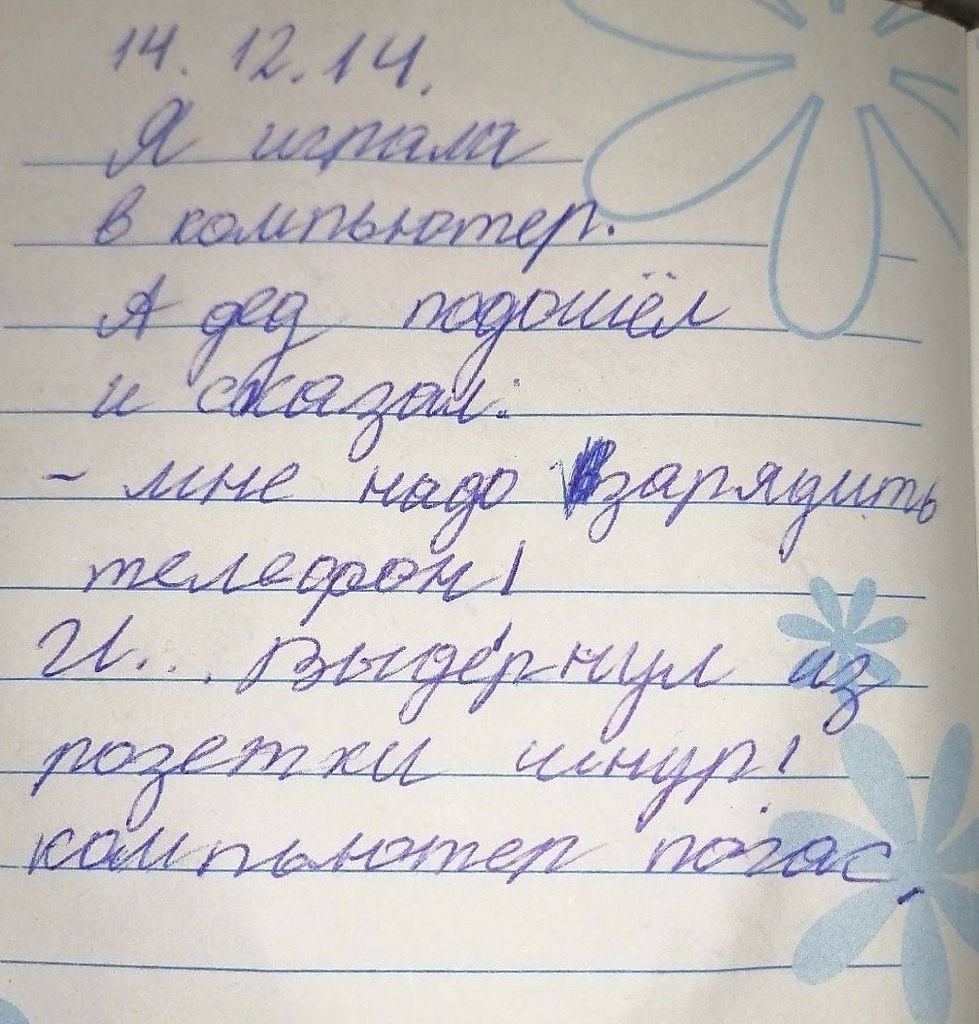 14.12.14.
Я играла
в компьютер.
А дед подошёл
и сказал:
- мне надо зарядить
телефон!
И... выдернул из
розетки шнур!
компьютер погас,